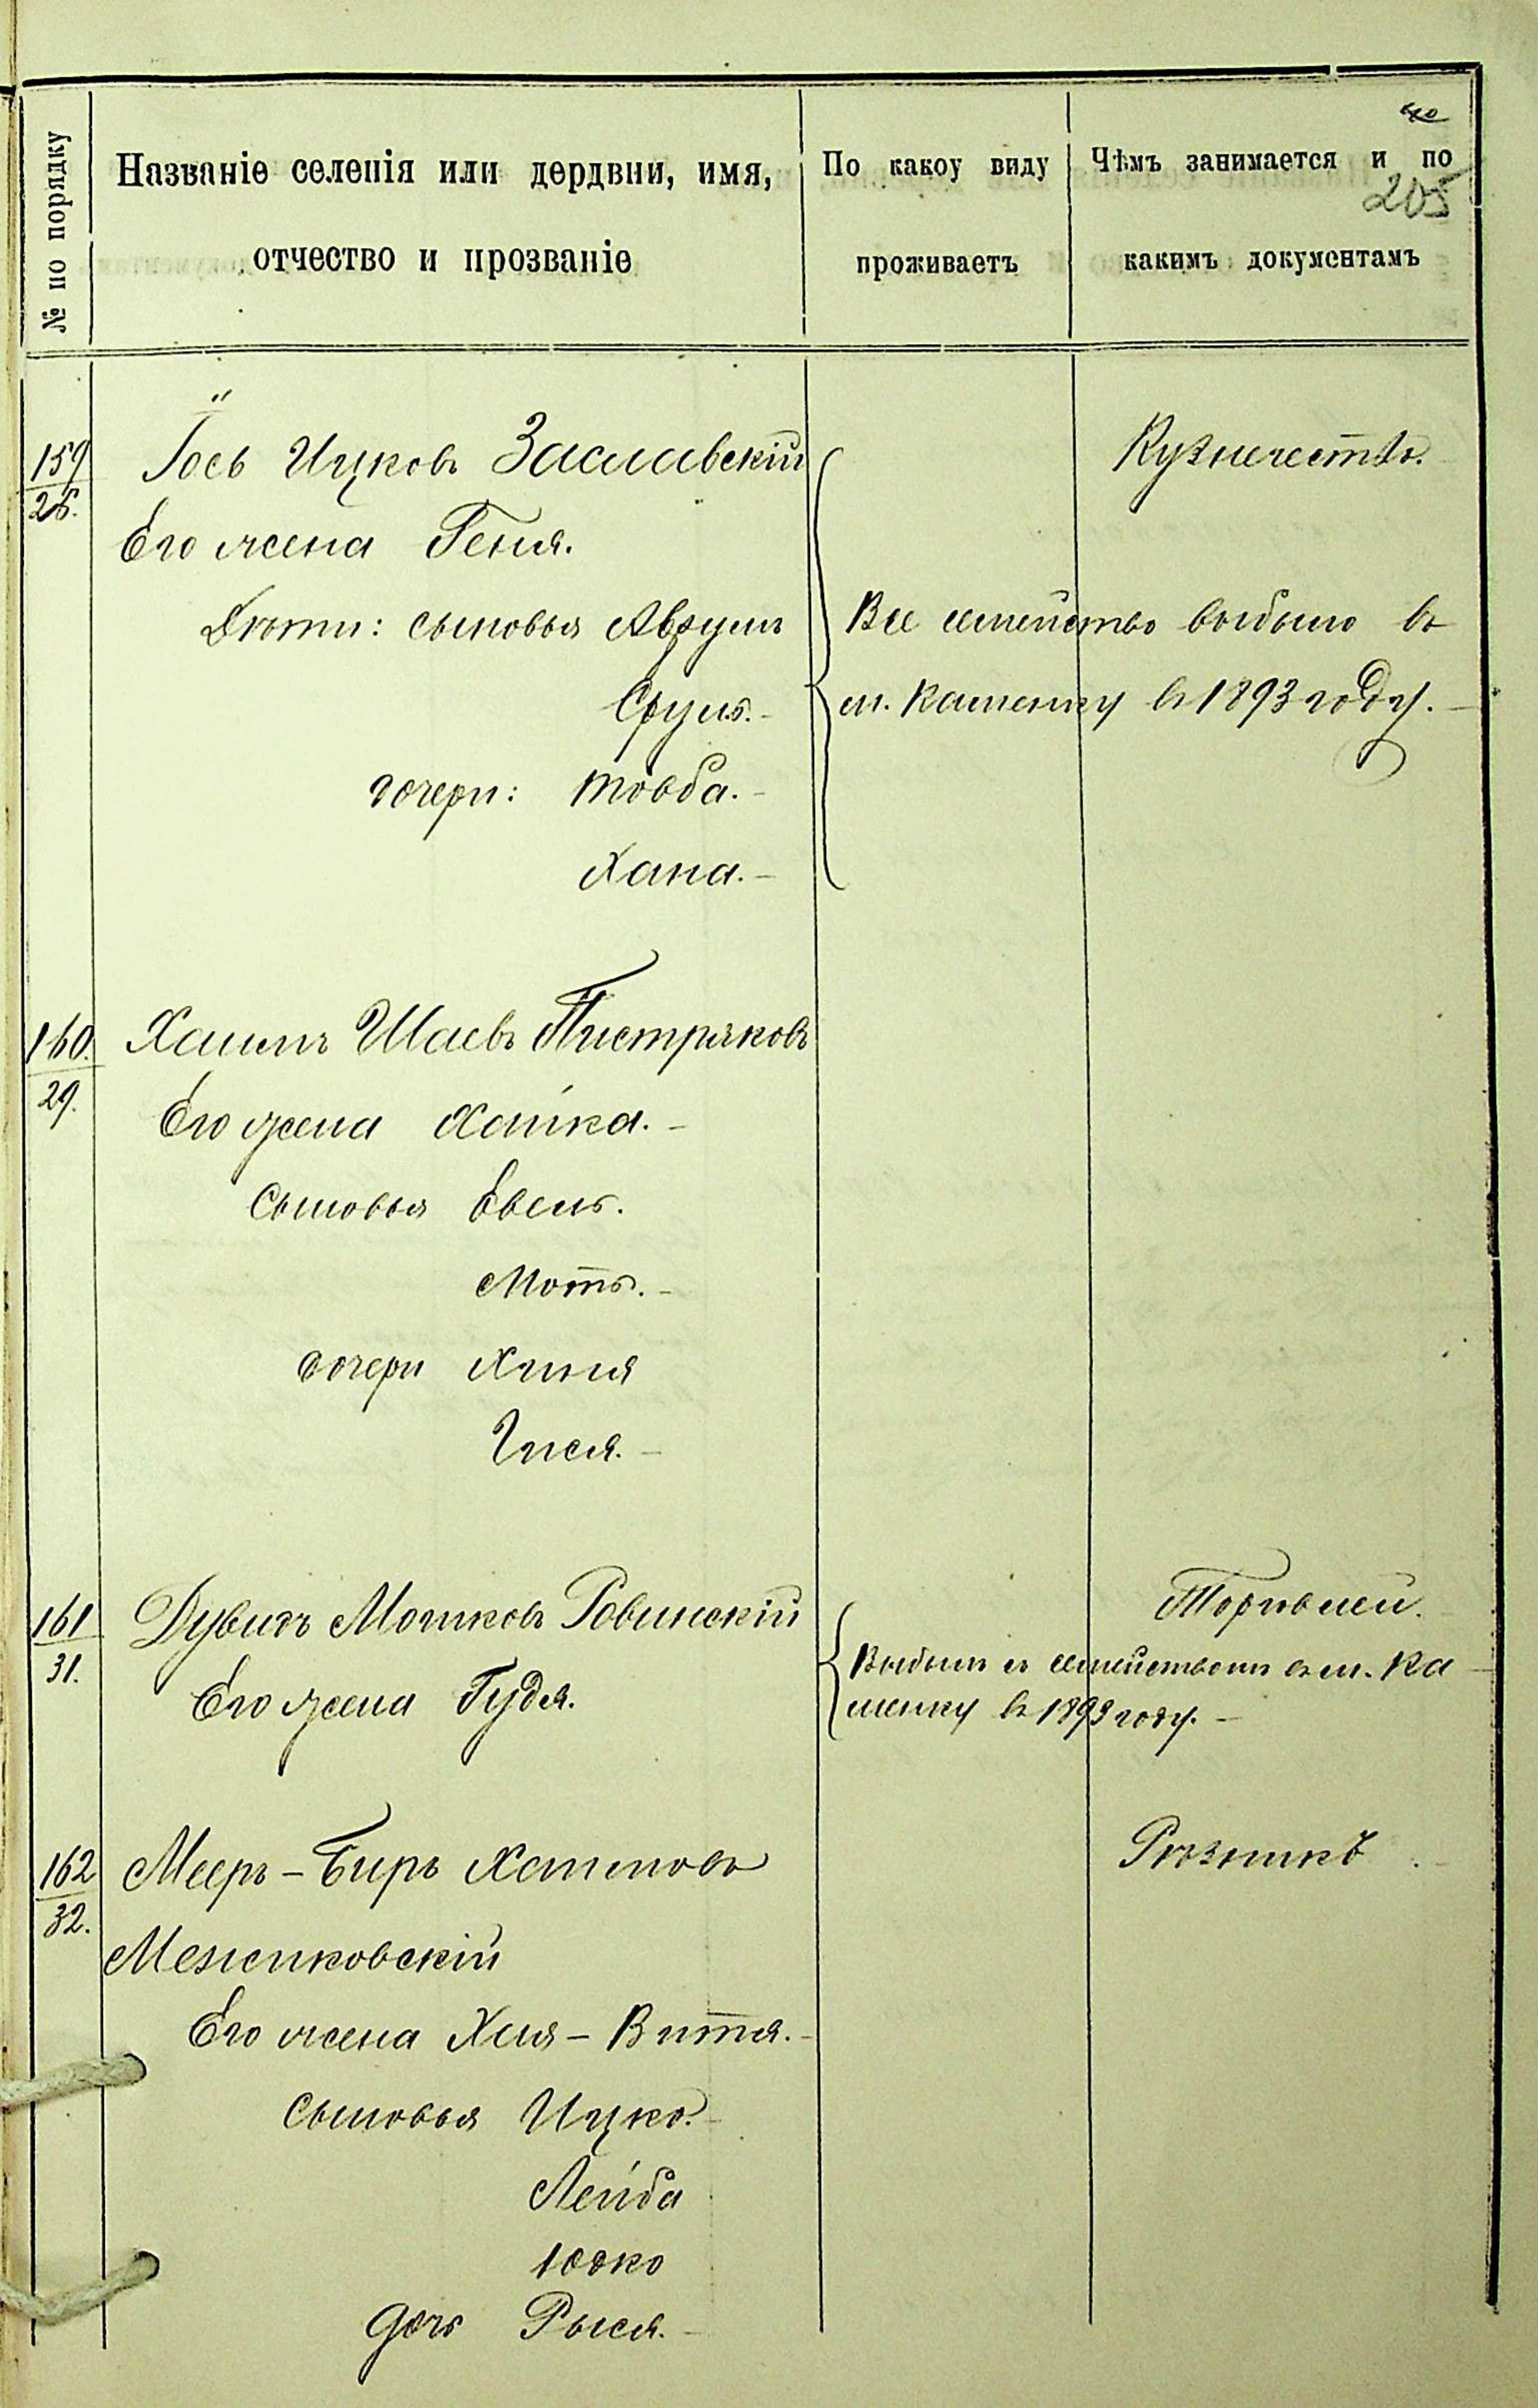 40
№ по порядку
Названіе селенія или дердвни, имя,
отчество и прозваніе
По какоу виду
проживаетъ
Чѣмъ занимается и по
какимъ документамъ
205
159
Іось Ицковъ Заславскій
Кузнечество.
Его жена Геня.
Дѣти: сыновья Аврумъ
Сруль.
дочери: Товба.
Хана.
Все семейство выбыло въ
м. Каменку въ 1893 году.
160.
29.
Хаимъ Шаевъ Пистряковъ
Его жена Хайка.
Сыновья Евель.
Моть.
дочери Хиня
Гися.
161
31.
Дувидъ Мошковъ Ровинскій
Его жена Гудя.
Торговлей.
Выбылъ съ семействомъ въ м. Ка
менку въ 1893 году.
162
32.
Мееръ-Биръ Хаимовъ
Рѣзникъ
Межиковскій
Его жена Хая-Витя.
Сыновья Ицко.
Лейба
Юдко
дочь Рыся.